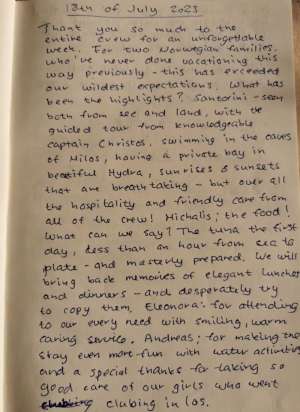 13th of July 2023
Thank you so much to the
entire crew for an unforgettable
week. For two Norwegian families,
who've never done vacationing this
way previously - this has exceeded
our wildest expectations. What has
been the highlights? Santorini - seen
both from sea and land, with the
guided tour from knowledgeable
captain Christos. Swimming in the caves
of Milos, having a private bay in
beatiful Hydra, sunrises & sunsets
that are breath taking - but over all
the hospitality and friendly care from
all of the crew! Michalis; the food!
What can we say? The tuna the first
day, less than an hour from sea to
plate - and masterly prepared. We will
bring back memories of elegant lunches
and dinners - and desperately try
to copy them. Eleonora: for attending
to our every need with smiling, warm
caring service. Andreas; for making the
stay even more fun with water activities
and a special thanks for taking so
good care of our girls who went
clubing in Ios.